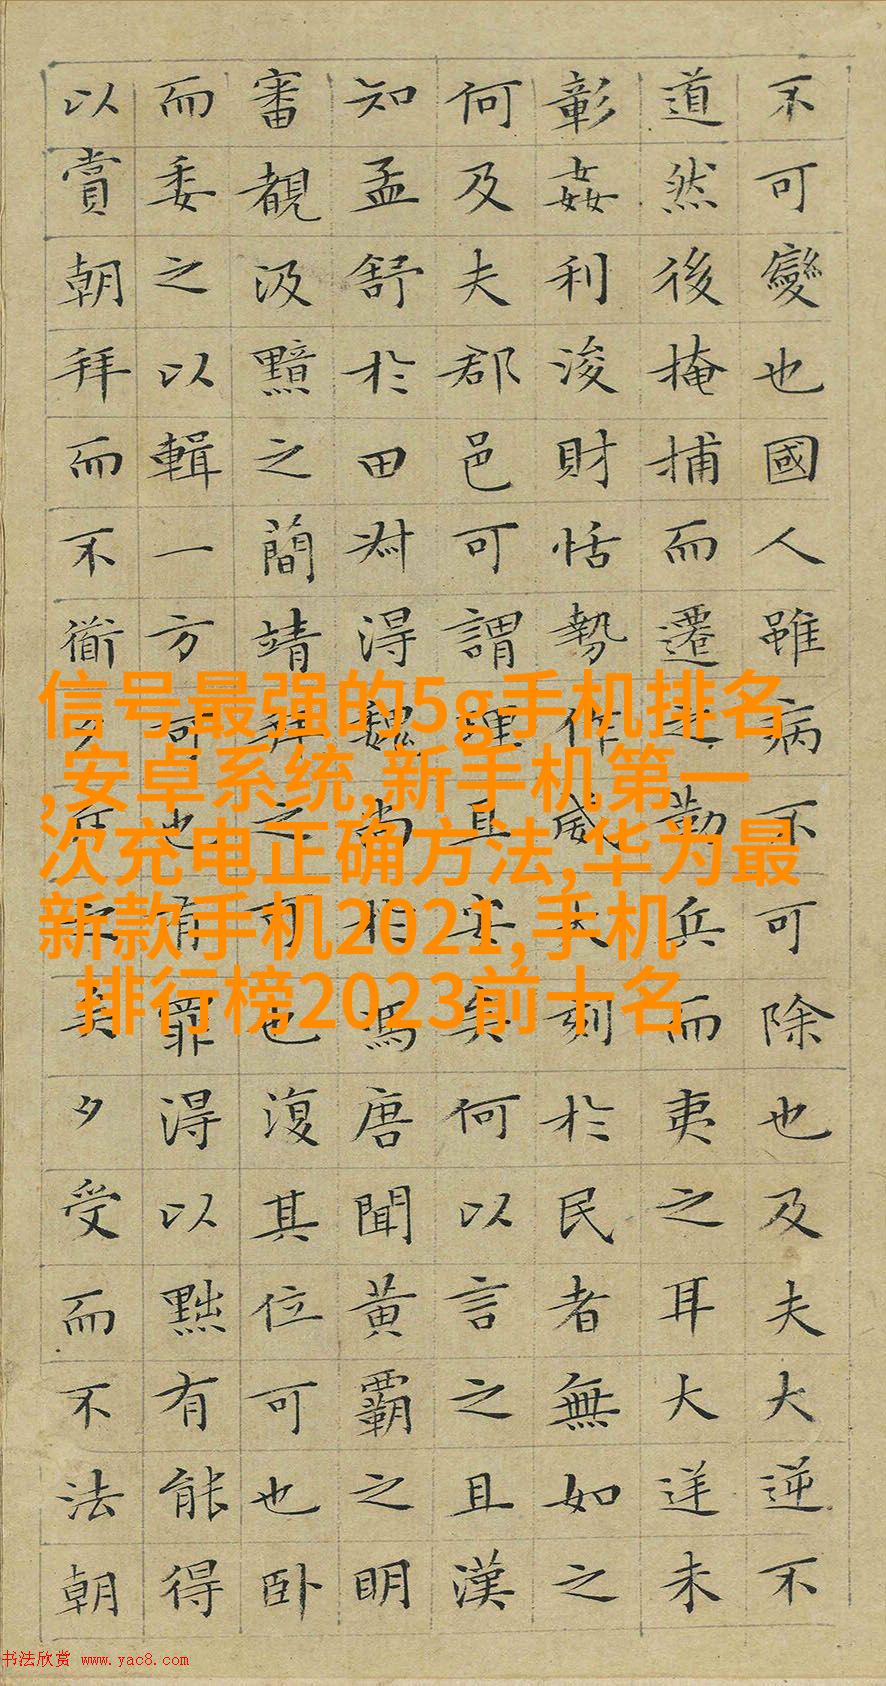 不可變也國人雖病不可除也及夫大逆不
道然後掩捕而遷之勒兵而夷之耳大逆未
彰姦利浚財恬勢作威大刻於民者無如之
何及夫郡邑可謂理且安矣何以言之且漢
知孟舒於田叔得魏尚於馮唐聞黃霸之明
審覩汲黯之簡靖拜之可也復其位可也卧
而委之以輯一方可也有罪得以黜有能得
以賞朝拜而不衜夕斥之矣夕受而不法朝
信号最强的5g手机排名
,安卓系统,新手机第一
次充电正确方法,华为最
新款手机2021,手机
排行榜2023前十名
书法欣赏 www.yac8.com